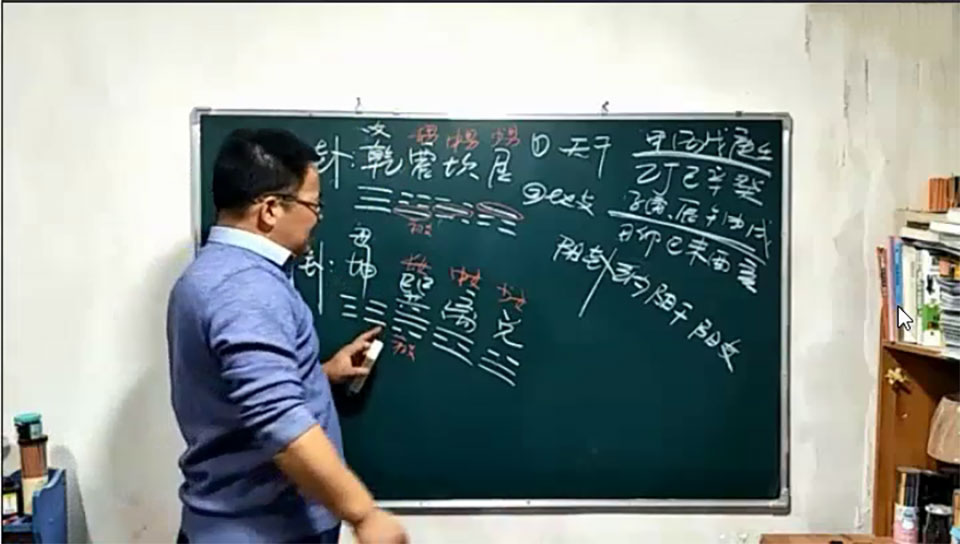 父
长男 中男 少男
卦: 乾 震 坎 艮
初爻
母
卦: 坤
长女 中女 少女
巽 离 兑
初爻
① 天干
甲丙戊庚壬
乙丁己辛癸
② 地支
子寅辰午申戌
丑卯巳未酉亥
阳干 阳支